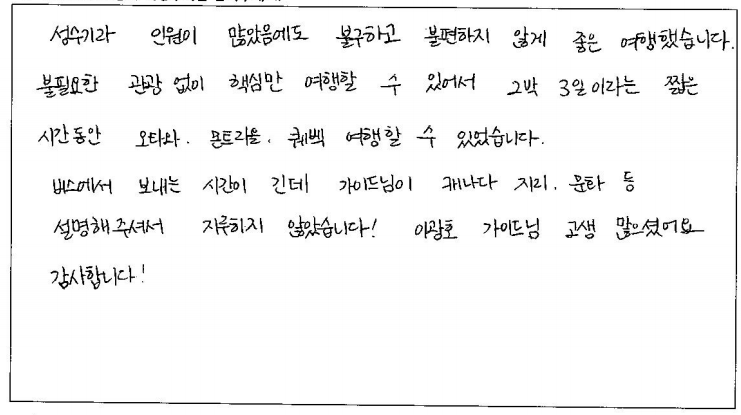 성수기라 인원이 많았음에도 불구하고 불편하지 않게 좋은 여행했습니다.
불필요한 관광 없이 핵심만 여행할 수 있어서 2박 3일이라는 짧은
시간동안 오타와. 몬트리올. 퀘벡 여행할 수 있었습니다.
버스에서 보내는 시간이 긴데 가이드님이 캐나다 지리. 문화 등
설명해주셔서 지루하지 않았습니다! 이광호 가이드님 고생 많으셨어요
감사합니다!